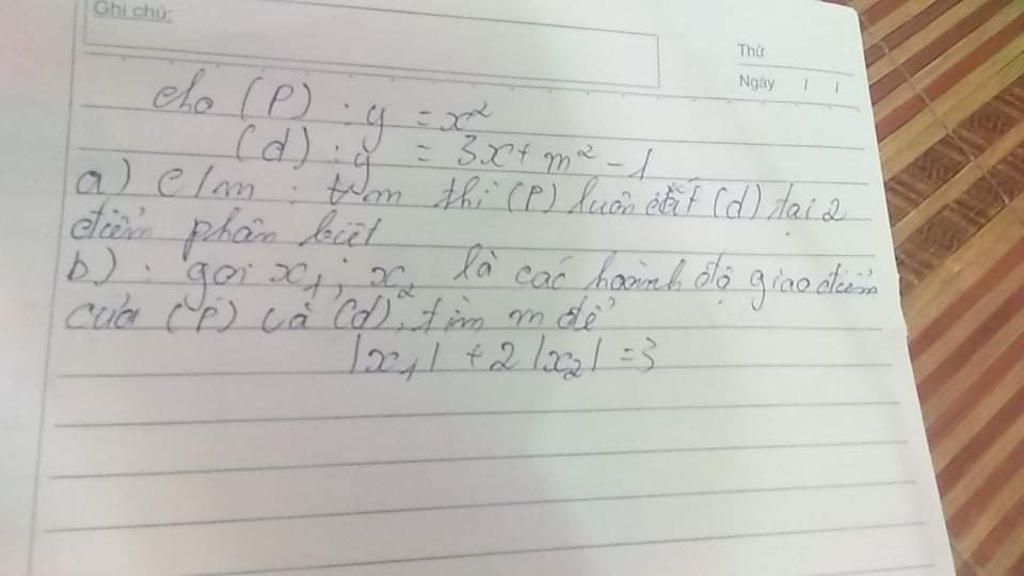 Ghi chú:
Thứ
Ngày / /
cho (P) : y = x²
(d) : y = 3x + m² - 1
a) C/m : thì (P) luôn cắt (d) tại 2
điểm phân biệt
b) : gọi x₁ ; x₂ là các hoành độ giao điểm
của (P) và (d), tìm m để
|x₁| + 2|x₂| = 3